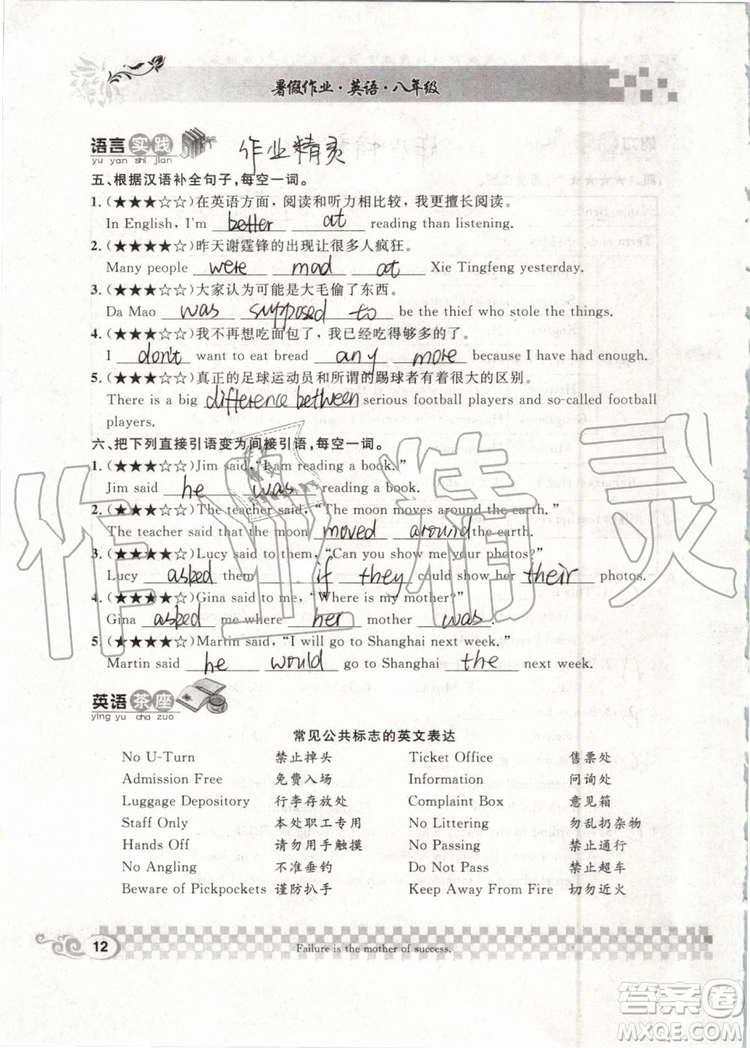 暑假作业·英语·八年级
语言实践 作业精灵
yu yan shi jian
五、根据汉语补全句子,每空一词。
1.(★★★☆☆)在英语方面,阅读和听力相比较,我更擅长阅读。
In English, I'm better at reading than listening.
2.(★★★☆☆)昨天谢霆锋的出现让很多人疯狂。
Many people were mad at Xie Tingfeng yesterday.
3.(★★★☆☆)大家认为可能是大毛偷了东西。
Da Mao was supposed to be the thief who stole the things.
4.(★★★☆☆)我不再想吃面包了,我已经吃得够多的了。
I don't want to eat bread any more because I have had enough.
5.(★★★☆☆)真正的足球运动员和所谓的踢球者有很大的区别。
There is a big difference between serious football players and so-called football
players.
六、把下列直接引语变为间接引语,每空一词。
1.(★★★★☆)Jim said, "I am reading a book."
Jim said he was reading a book.
2.(★★★★☆)The teacher said, "The moon moves around the earth."
The teacher said that the moon moved around the earth.
3.(★★★★☆)Lucy said to them, "Can you show me your photos?"
Lucy asked them if they could show her their photos.
4.(★★★★☆)Gina said to me, "Where is my mother?"
Gina asked me where her mother was.
5.(★★★★☆)Martin said, "I will go to Shanghai next week."
Martin said he would go to Shanghai the next week.
英语茶座
ying yu cha zuo
常见公共标志的英文表达
No U-Turn 禁止掉头 Ticket Office 售票处
Admission Free 免费入场 Information 问询处
Luggage Depository 行李存放处 Complaint Box 意见箱
Staff Only 本处职工专用 No Littering 勿乱扔杂物
Hands Off 请勿用手触摸 No Passing 禁止通行
No Angling 不准垂钓 Do Not Pass 禁止超车
Beware of Pickpockets 谨防扒手 Keep Away From Fire 切勿近火
12 Failure is the mother of success.
作业精灵
答案圈
MXQE.COM